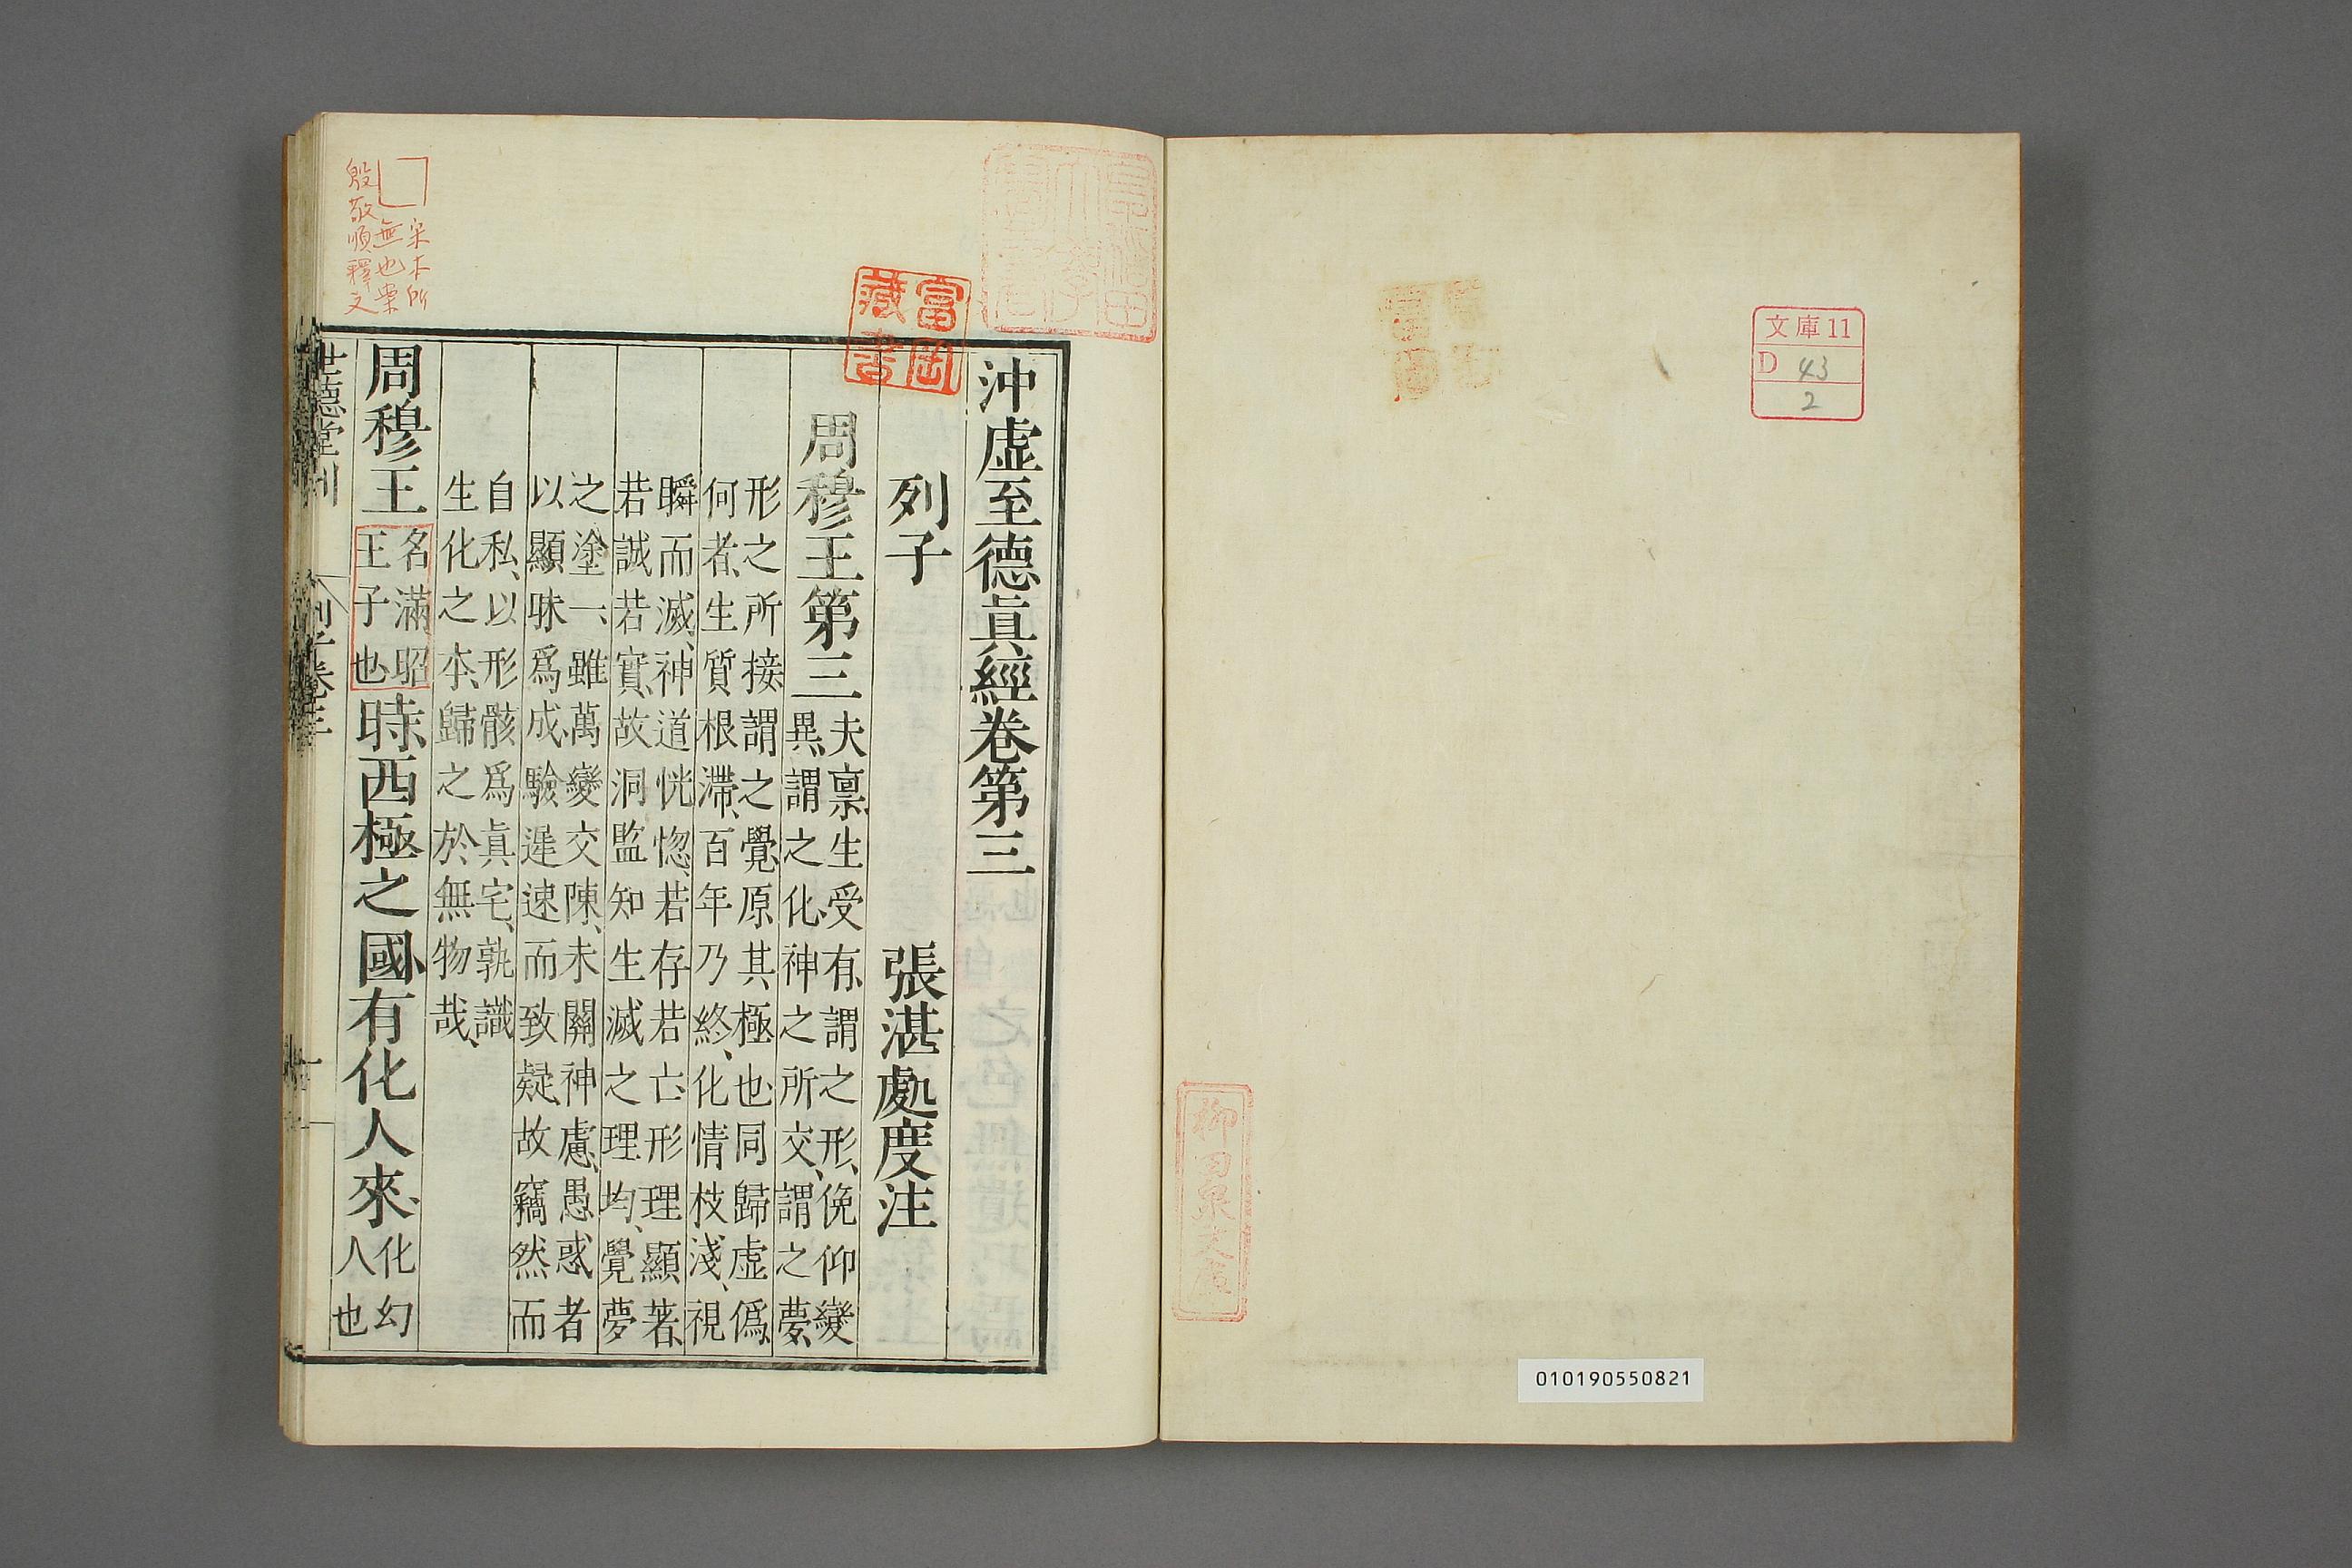 文庫11
D 43
2
010190550821
早稲田大學圖書
富岡藏書
沖虛至德眞經卷第三
列子 張湛處度注
周穆王第三
夫稟生受有謂之形俛仰變
異謂之化神之所交謂之夢
形之所接謂之覺原其極也同歸虛僞
何者生質根滯百年乃終化情枝淺視
瞬而滅神道恍惚若存若亡形理顯著
若誠若實故洞監知生滅之理均覺夢
之塗一雖萬變交陳未關神慮愚惑者
以顯昧爲成驗遲速而致疑故竊然而
自私以形骸爲眞宅孰識
生化之本歸之於無物哉
周穆王
名滿昭
王子也
時西極之國有化人來
化幻
人也
宋本所
無也案
殷敬順釋文
世德堂刊
列子卷三
一